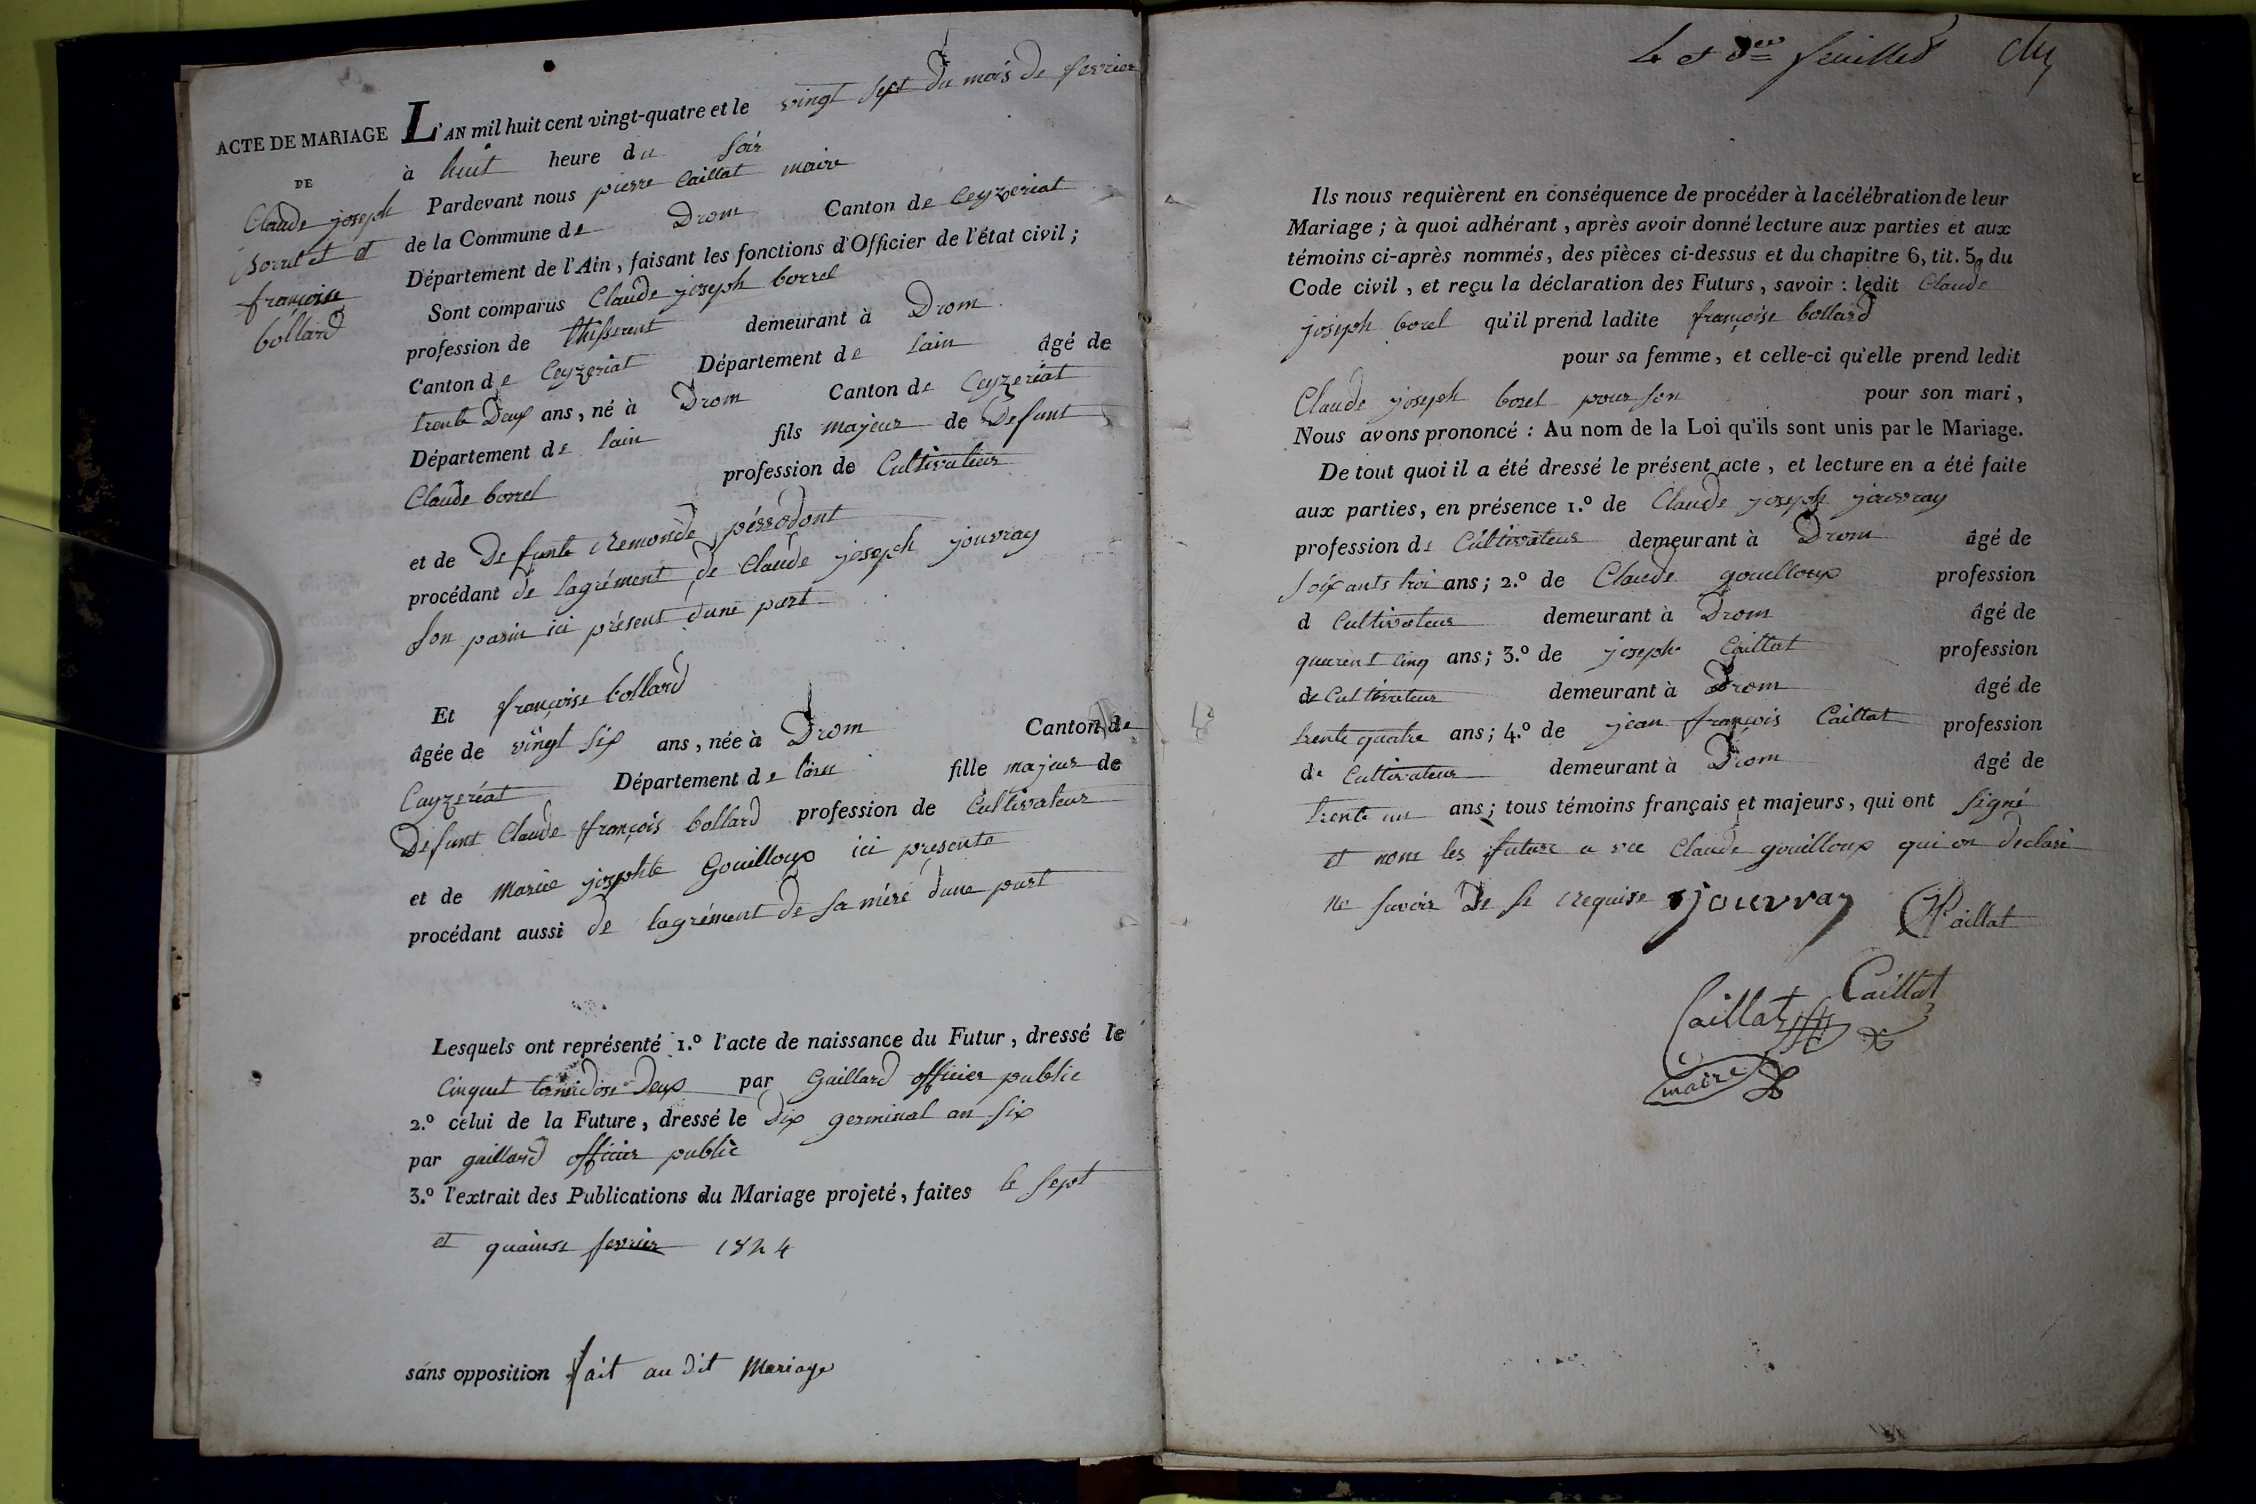 ACTE DE MARIAGE
DE
Claude joseph
Borrel et et
françoise
bollard
L'AN mil huit cent vingt-quatre et le vingt sept du mois de fevrier
à huit heure du soir
Pardevant nous pierre Caillat maire
de la Commune de Drom Canton de Ceyzeriat
Département de l'Ain, faisant les fonctions d'Officier de l'état civil;
Sont comparus Claude joseph borrel
profession de thisserent demeurant à Drom
Canton de Ceyzeriat Département de Lain âgé de
trente Deux ans, né à Drom Canton de Ceyzeriat
Département de Lain fils majeur de Defunt
Claude borrel profession de Cultivateur
et de Defunte Remonde pérrodont
procédant de lagrément de Claude joseph jouvray
son parin ici présent dune part
Et françoise bollard
âgée de vingt six ans, née à Drom Canton de
Cayzeréat Département de Lain fille majeur de
Defunt Claude françois bollard profession de Cultivateur
et de Marie josephte Gouilloux ici presente
procédant aussi de lagrément de sa mére dune part
Lesquels ont représenté 1.º l'acte de naissance du Futur, dressé le
Deux par Gaillard officier public
2.º celui de la Future, dressé le dix germinal an six
par gaillard officier public
3.º l'extrait des Publications du Mariage projeté, faites le sept
et quainse fevrier 1824
sans opposition fait au dit Mariage
4 et feuilles
Ils nous requièrent en conséquence de procéder à la célébration de leur
Mariage; à quoi adhérant, après avoir donné lecture aux parties et aux
témoins ci-après nommés, des pièces ci-dessus et du chapitre 6, tit. 5, du
Code civil, et reçu la déclaration des Futurs, savoir: ledit Claude
joseph borel qu'il prend ladite françoise bollard
pour sa femme, et celle-ci qu'elle prend ledit
Claude joseph borel pour son pour son mari,
Nous avons prononcé: Au nom de la Loi qu'ils sont unis par le Mariage.
De tout quoi il a été dressé le présent acte, et lecture en a été faite
aux parties, en présence 1.º de Claude joseph jouvray
profession de Cultivateur demeurant à Drom âgé de
soixants troi ans; 2.º de Claude gouelloux profession
d Cultivateur demeurant à Drom âgé de
quarent cinq ans; 3.º de joseph Caillat profession
de Cultivateur demeurant à Drom âgé de
trente quatre ans; 4.º de jean françois Caillat profession
de Cultivateur demeurant à Drom âgé de
trente un ans; tous témoins français et majeurs, qui ont signé
et nom les future a vec Claude gouilloux qui on déclaré
ne savoir de se requise jouvray Caillat
Caillat
Caillat
maire